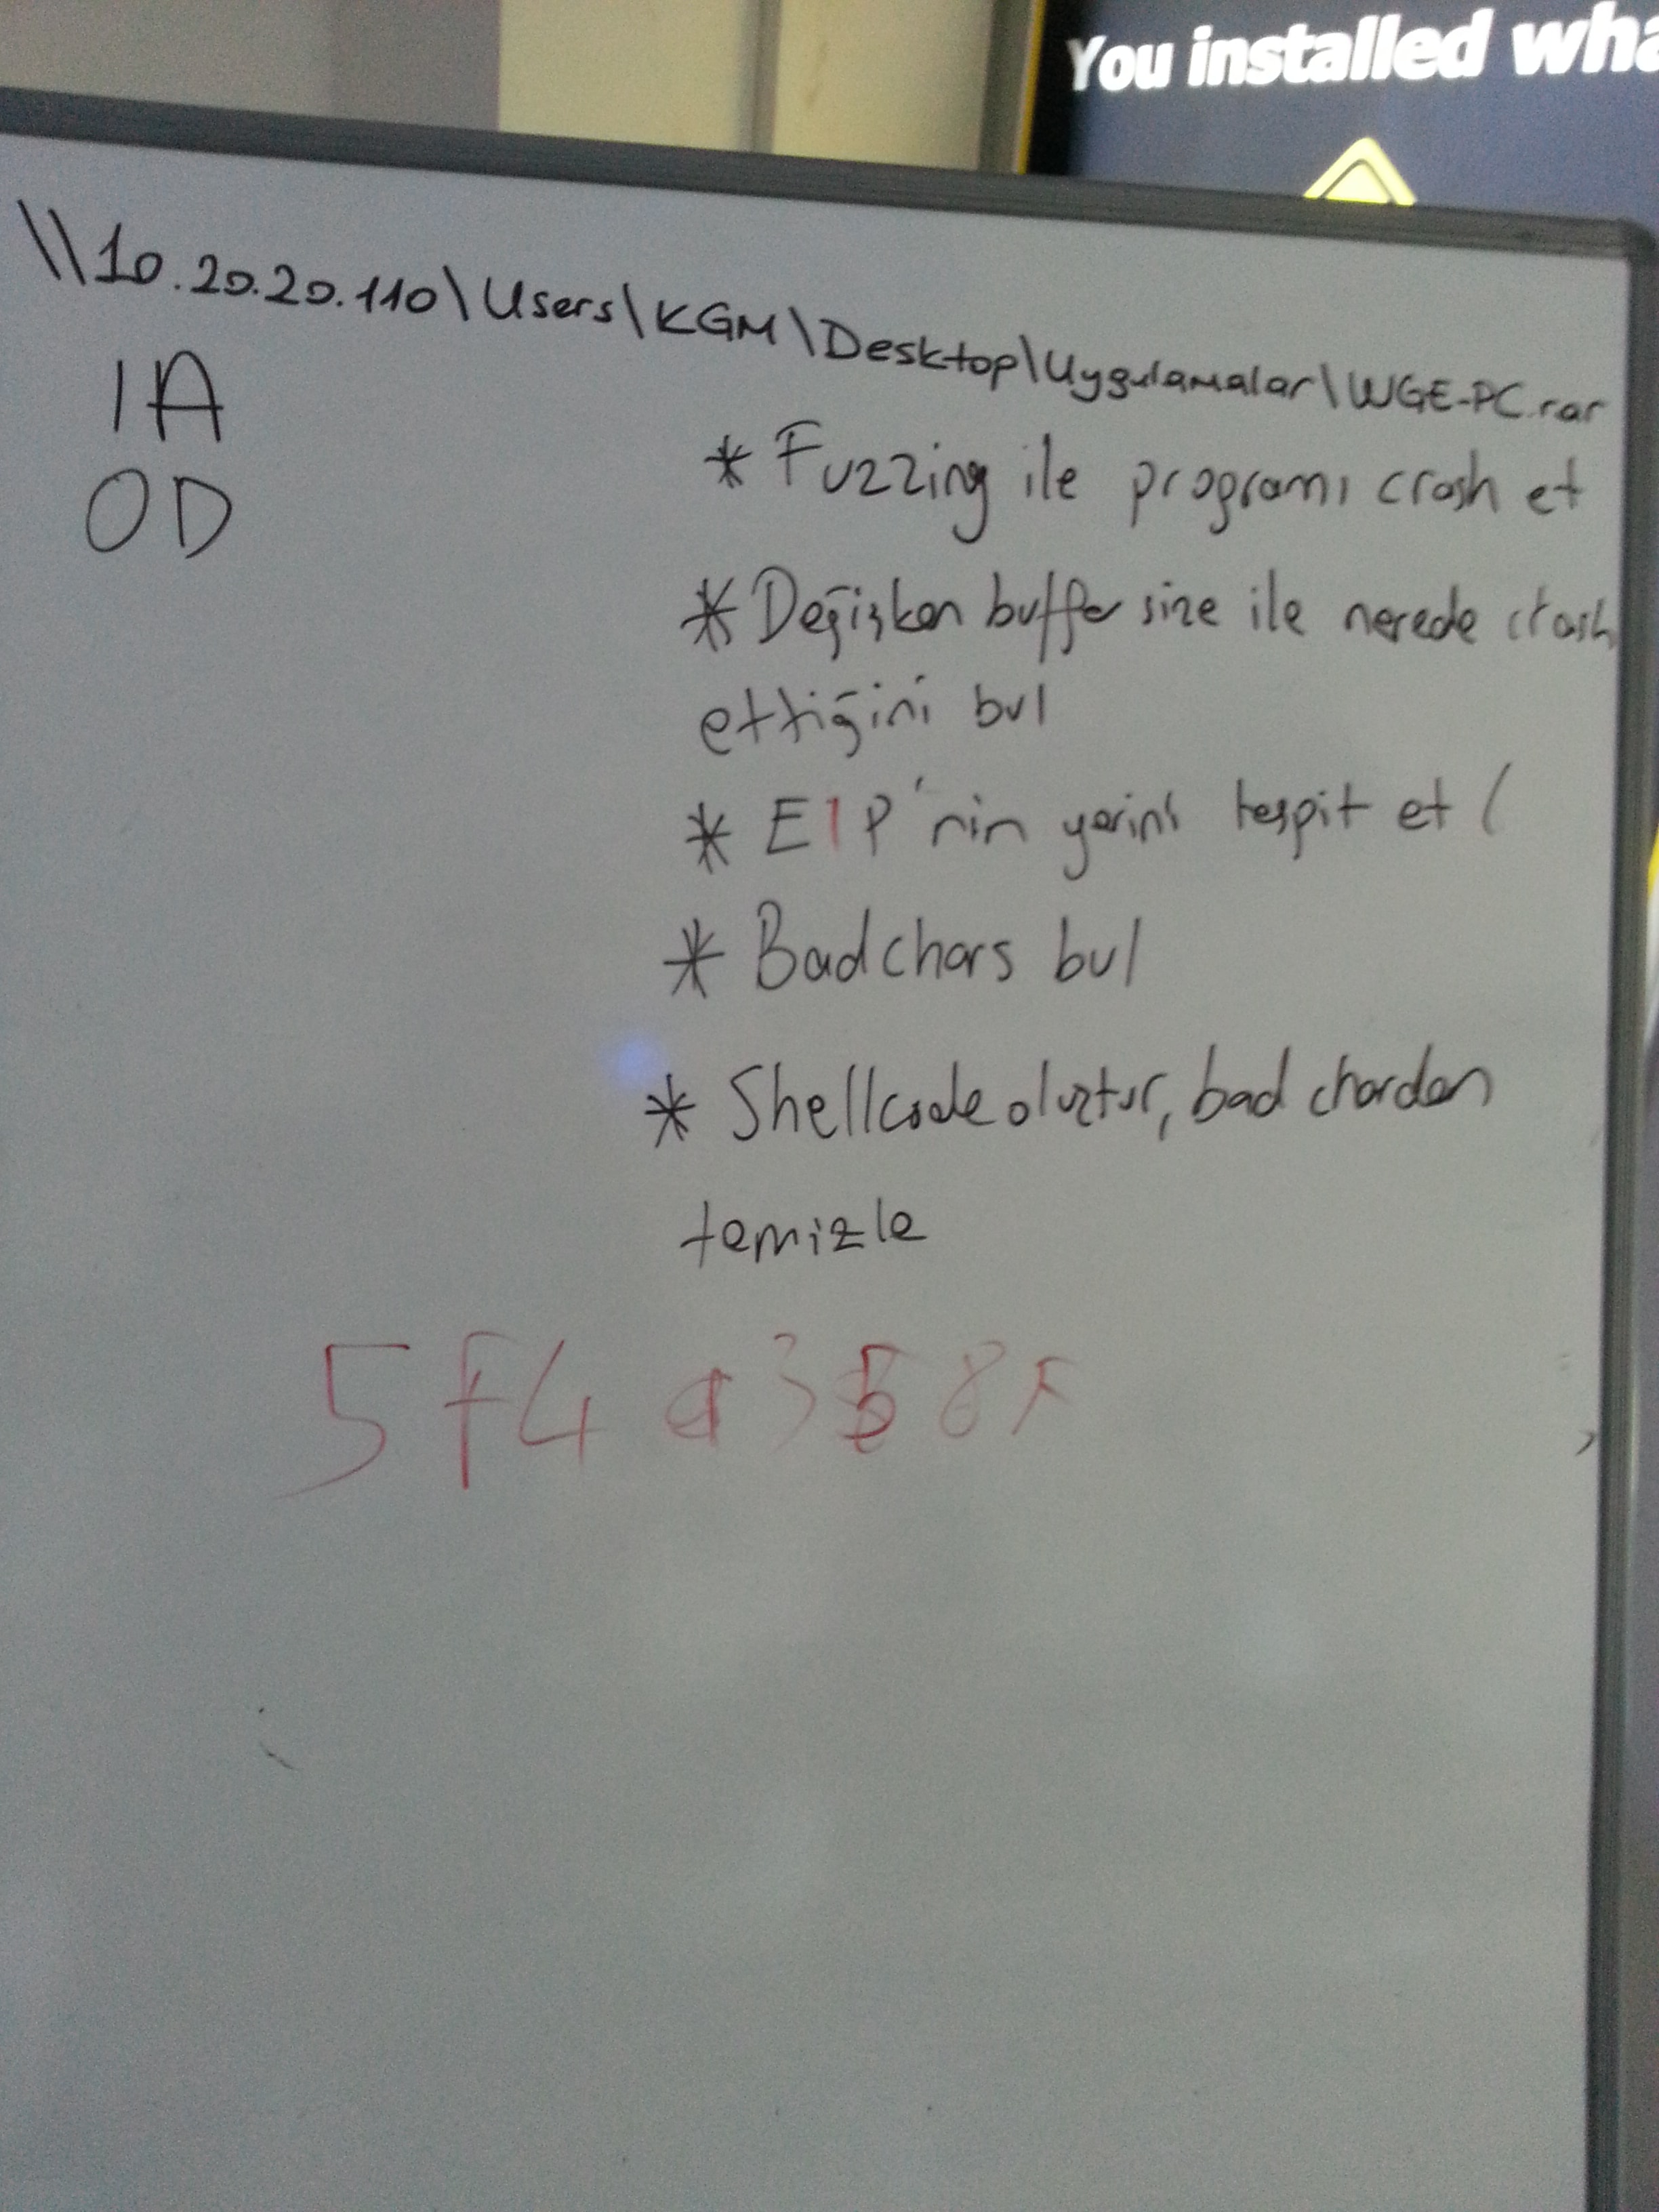 You installed wha
\\10.20.20.110\Users\KGM\Desktop\Uygulamalar\WGE-PC.rar
1A
0D
* Fuzzing ile programı crash et
* Değişken buffer size ile nerede crash
ettiğini bul
* EIP'nin yerini tespit et (
* Badchars bul
* Shellcode oluştur, bad chardan
temizle
5f4